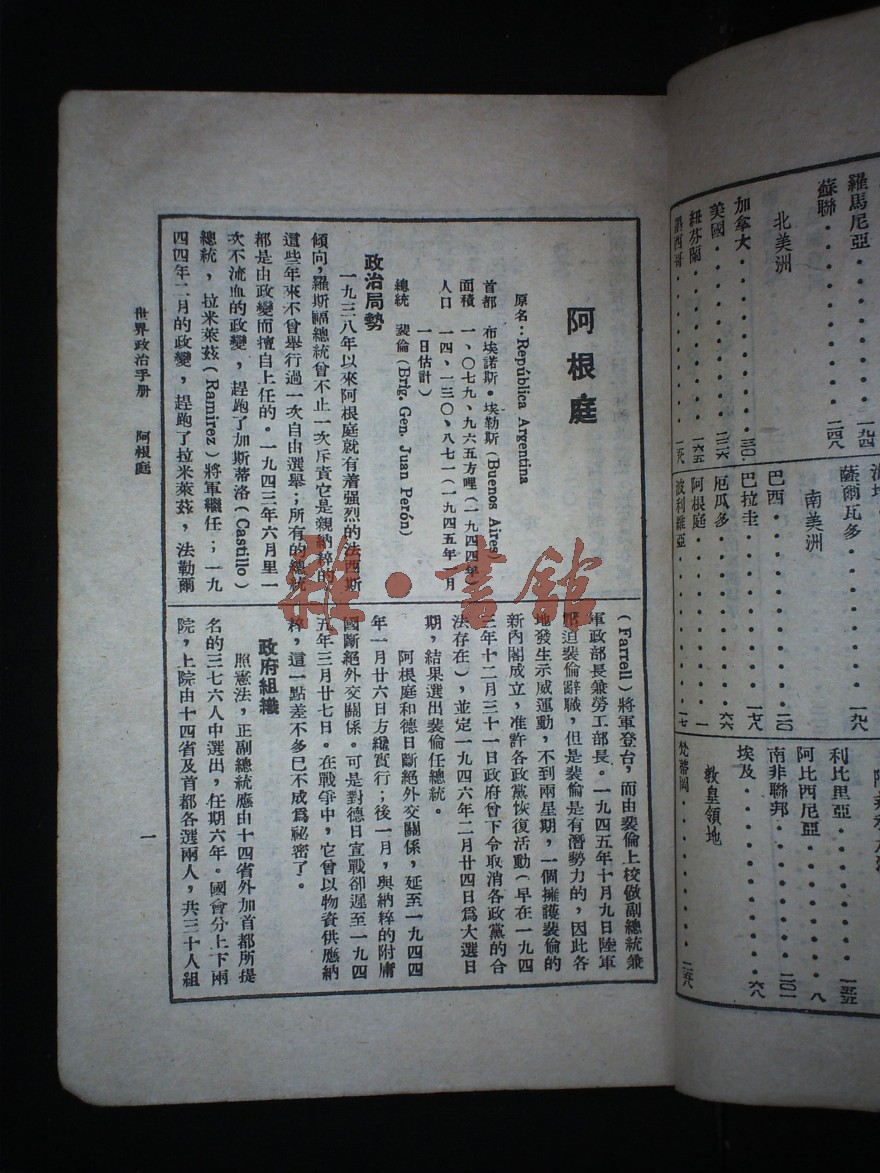 阿根庭
原名：República Argentina
首都　布埃諾斯・埃勒斯(Buenos Aires)
面積　一、〇七九、九六五方哩(一九四四年)
人口　一四、一三〇、八七一(一九四五年一月
一日估計)
總統　裴倫(Brig. Gen. Juan Perón)
政治局勢
一九三八年以來阿根庭就有着强烈的法西斯
傾向，羅斯福總統曾不止一次斥責它是親納粹的。
這些年來不曾舉行過一次自由選舉；所有的總統
都是由政變而擅自上任的。一九四三年六月里一
次不流血的政變，趕跑了加斯蒂洛(Castillo)
總統，拉米萊茲(Ramirez)將軍繼任；一九
四四年二月的政變，趕跑了拉米萊茲，法勒爾
(Farrell)將軍登台，而由裴倫上校做副總統兼
軍政部長兼勞工部長。一九四五年十月九日陸軍
壓迫裴倫辭職，但是裴倫是有潛勢力的，因此各
地發生示威運動，不到兩星期，一個擁護裴倫的
新內閣成立，准許各政黨恢復活動(早在一九四
三年十二月三十一日政府曾下令取消各政黨的合
法存在)，並定一九四六年二月廿四日爲大選日
期，結果選出裴倫任總統。
阿根庭和德日斷絕外交關係，延至一九四四
年一月廿六日方纔實行；後一月，與納粹的附庸
國斷絕外交關係。可是對德日宣戰卻遲至一九四
五年三月廿七日。在戰爭中，它曾以物資供應納
粹，這一點差不多已不成爲祕密了。
政府組織
照憲法，正副總統應由十四省外加首都所提
名的三七六人中選出，任期六年。國會分上下兩
院，上院由十四省及首都各選兩人，共三十人組
世界政治手册　阿根庭
一
羅馬尼亞・・・・・一九四
蘇聯・・・・・二四八
北美洲
加拿大・・・・・三〇
美國・・・・・二二六
紐芬蘭・・・・・一六五
薩爾瓦多・・・・・一九八
南美洲
巴西・・・・・二〇
巴拉圭・・・・・一七八
厄瓜多・・・・・六六
阿根庭・・・・・一
波利維亞・・・・・一七
利比里亞・・・・・一五五
阿比西尼亞・・・・・八
南非聯邦・・・・・二〇一
埃及・・・・・六八
教皇領地
梵蒂岡・・・・・二五八
雜・書館